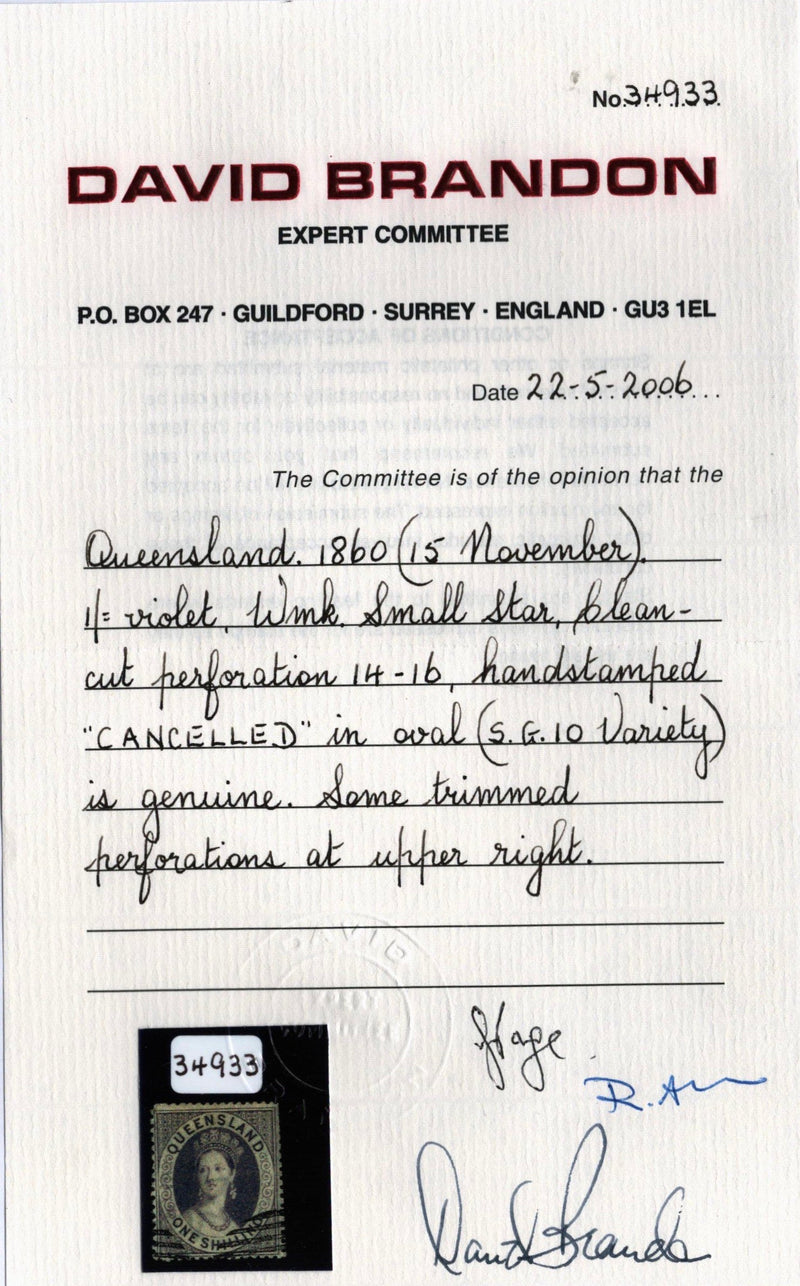 No. 34933
DAVID BRANDON
EXPERT COMMITTEE
P.O. BOX 247 · GUILDFORD · SURREY · ENGLAND · GU3 1EL
Date 22-5-2006...
The Committee is of the opinion that the
Queensland. 1860 (15 November).
1/= violet, Wmk. Small Star, Clean-
cut perforation 14-16, handstamped
"CANCELLED" in oval (S.G.10 Variety)
is genuine. Some trimmed
perforations at upper right.
DAVID
34933
QUEENSLAND
ONE SHILLING
David Brandon